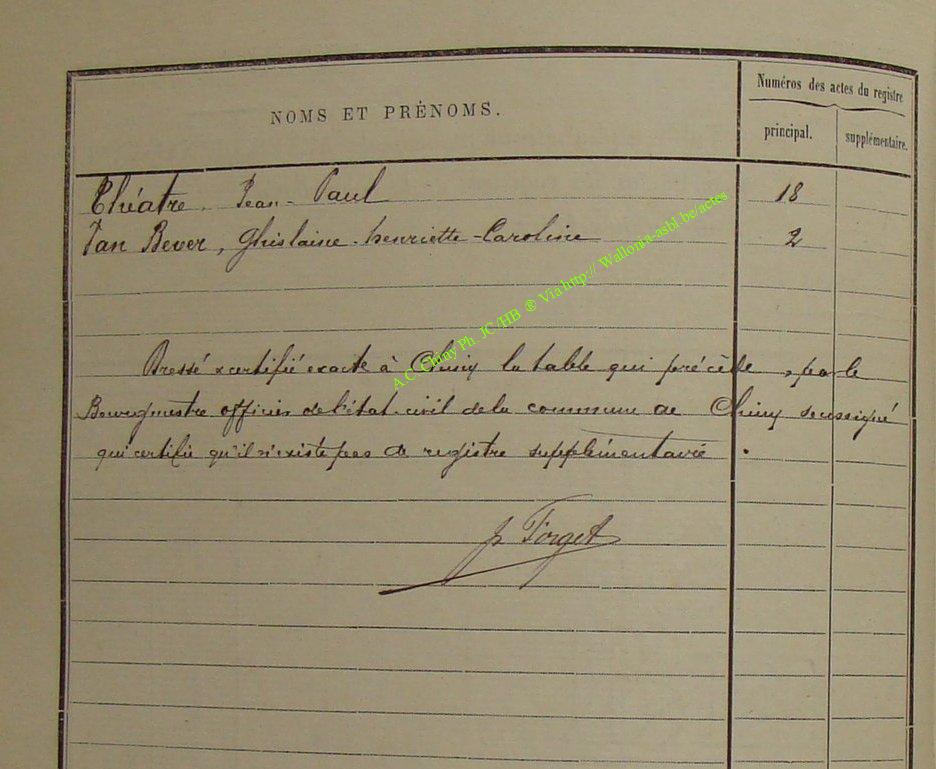 NOMS ET PRÉNOMS.
Numéros des actes du registre
principal.
supplémentaire.
Théatre. Jean-Paul 18
Van Bever, Ghislaine-henriette-Caroline 2
Dressé & certifié exacte à Chiny la table qui précède, par le
Bourgmestre officier de l'état-civil de la commune de Chiny soussigné
qui certifie qu'il n'existe pas de registre supplémentaire.
J. Forget
A.C. Chiny Ph JC/HB ® Via http:// Wallonia-asbl.be/actes